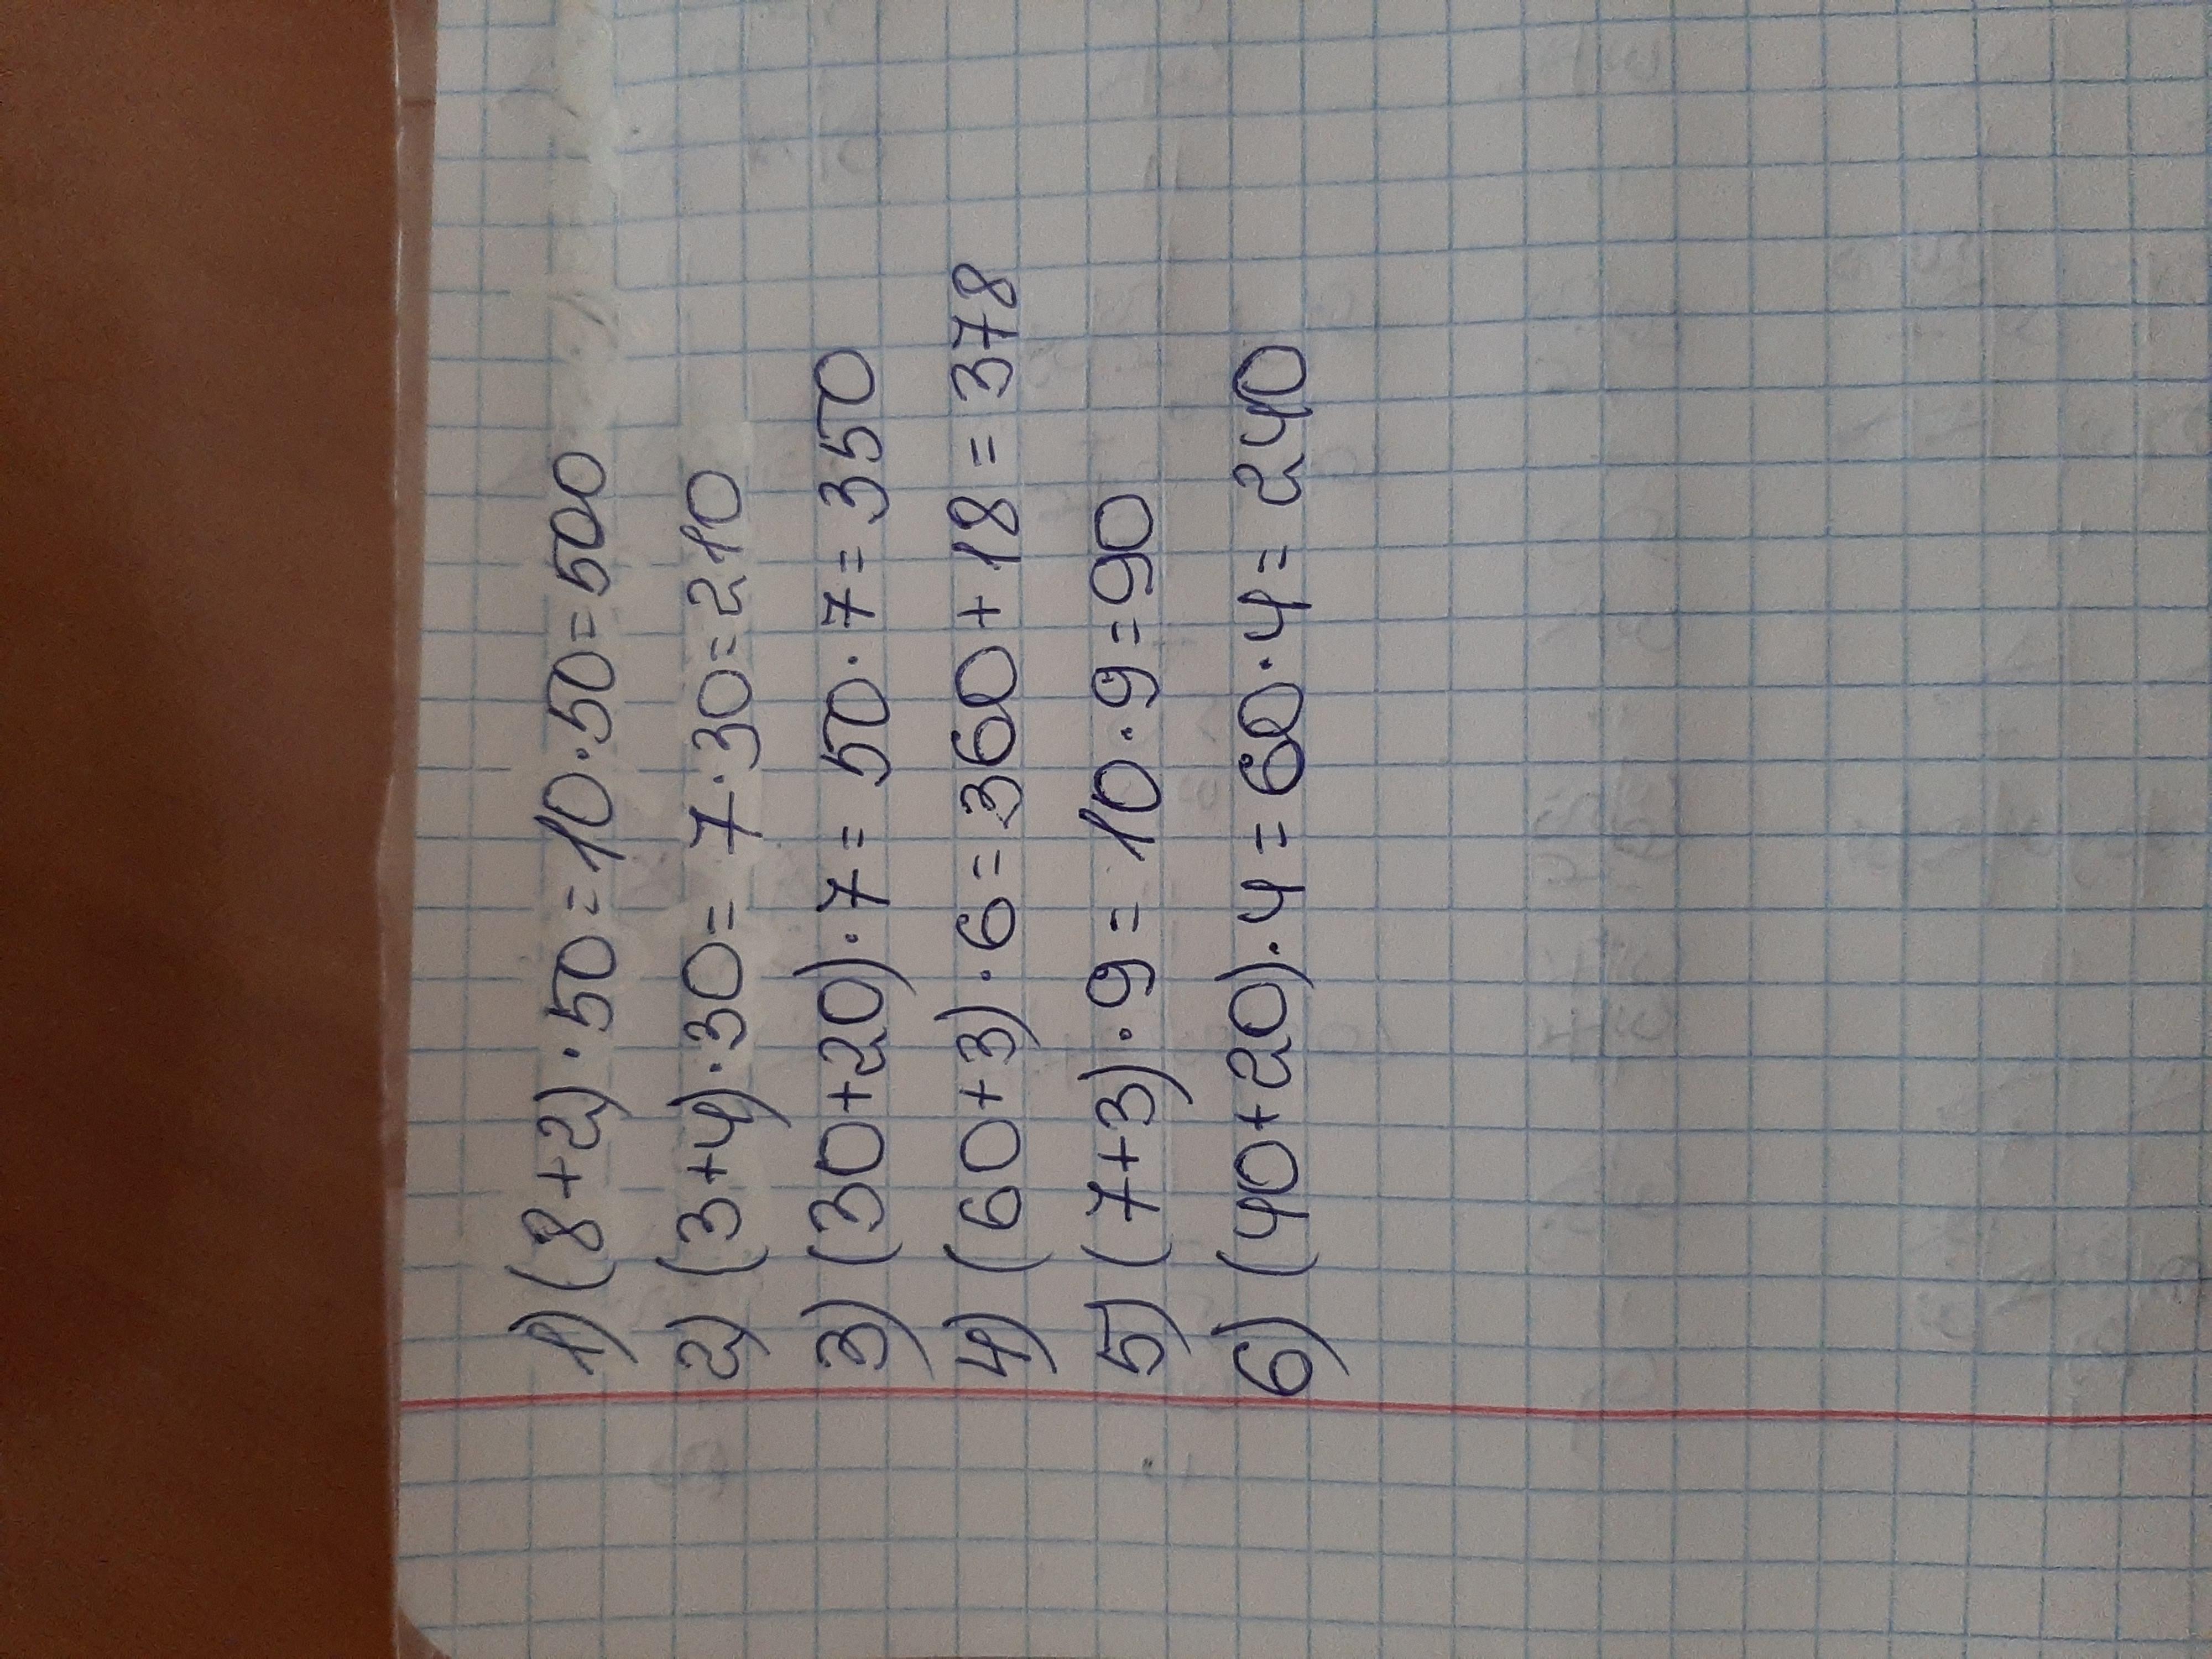 1) (8+2)·50=10·50=500
2) (3+4)·30=7·30=210
3) (30+20)·7=50·7=350
4) (60+3)·6=360+18=378
5) (7+3)·9=10·9=90
6) (40+20)·4=60·4=240